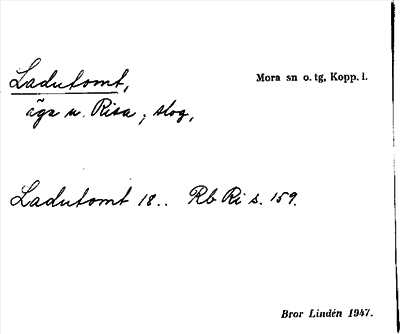 Ladutomt,
Mora sn o. tg, Kopp. l.
äga u. Risa; skog,
Ladutomt 18.. Rb Ri s. 159.
Bror Lindén 1947.